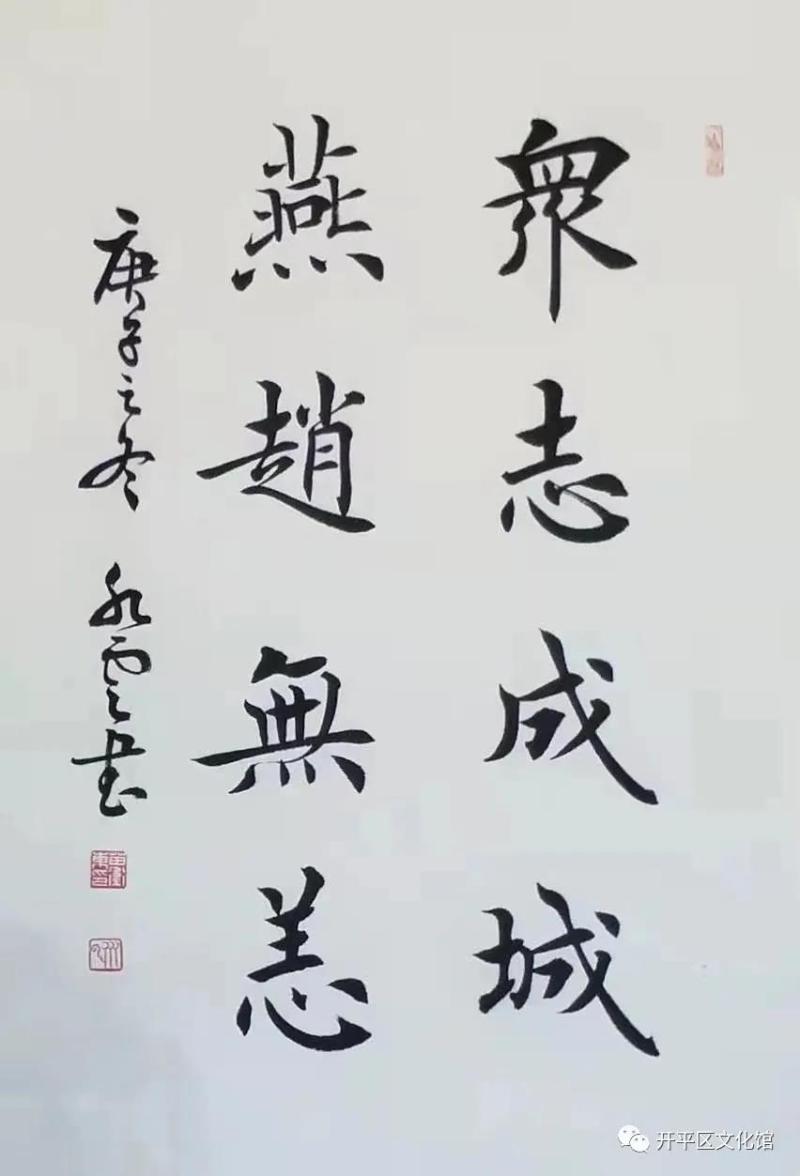 眾志成城
燕趙無恙
庚子之冬 永雲书
开平区文化馆